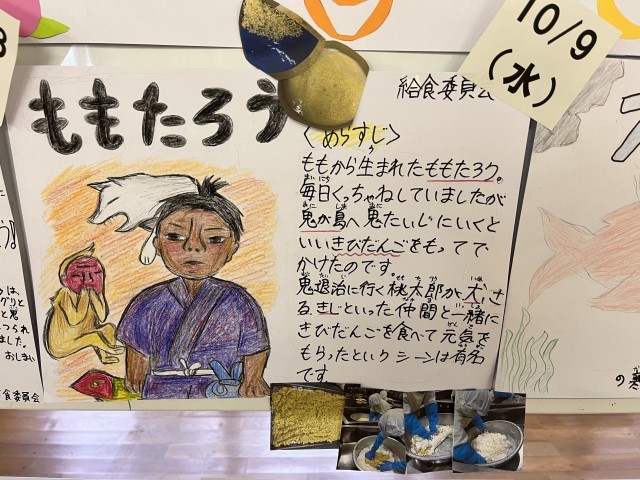 ももたろう
10/9
(水)
給食委員会
〈あらすじ〉
ももから生まれたももたろう。
毎日くっちゃねしていましたが
鬼が島へ鬼たいじにいくと
いいきびだんごをもってで
かけたのです。
鬼退治に行く桃太郎が、犬、さ
る、きじといった仲間と一緒に
きびだんごを食べて元気を
もらったというシーンは有名
です。
食委員会